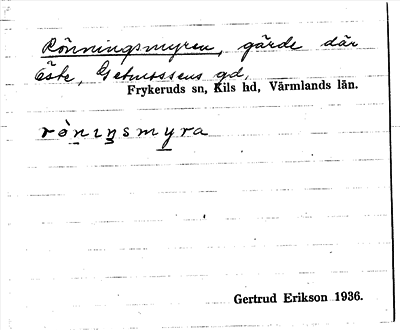 Rönningsmyren, gärde där
öste, Getmossens gd,
Frykeruds sn, Kils hd, Värmlands län.
rö̀niŋsmyra
Gertrud Erikson 1936.